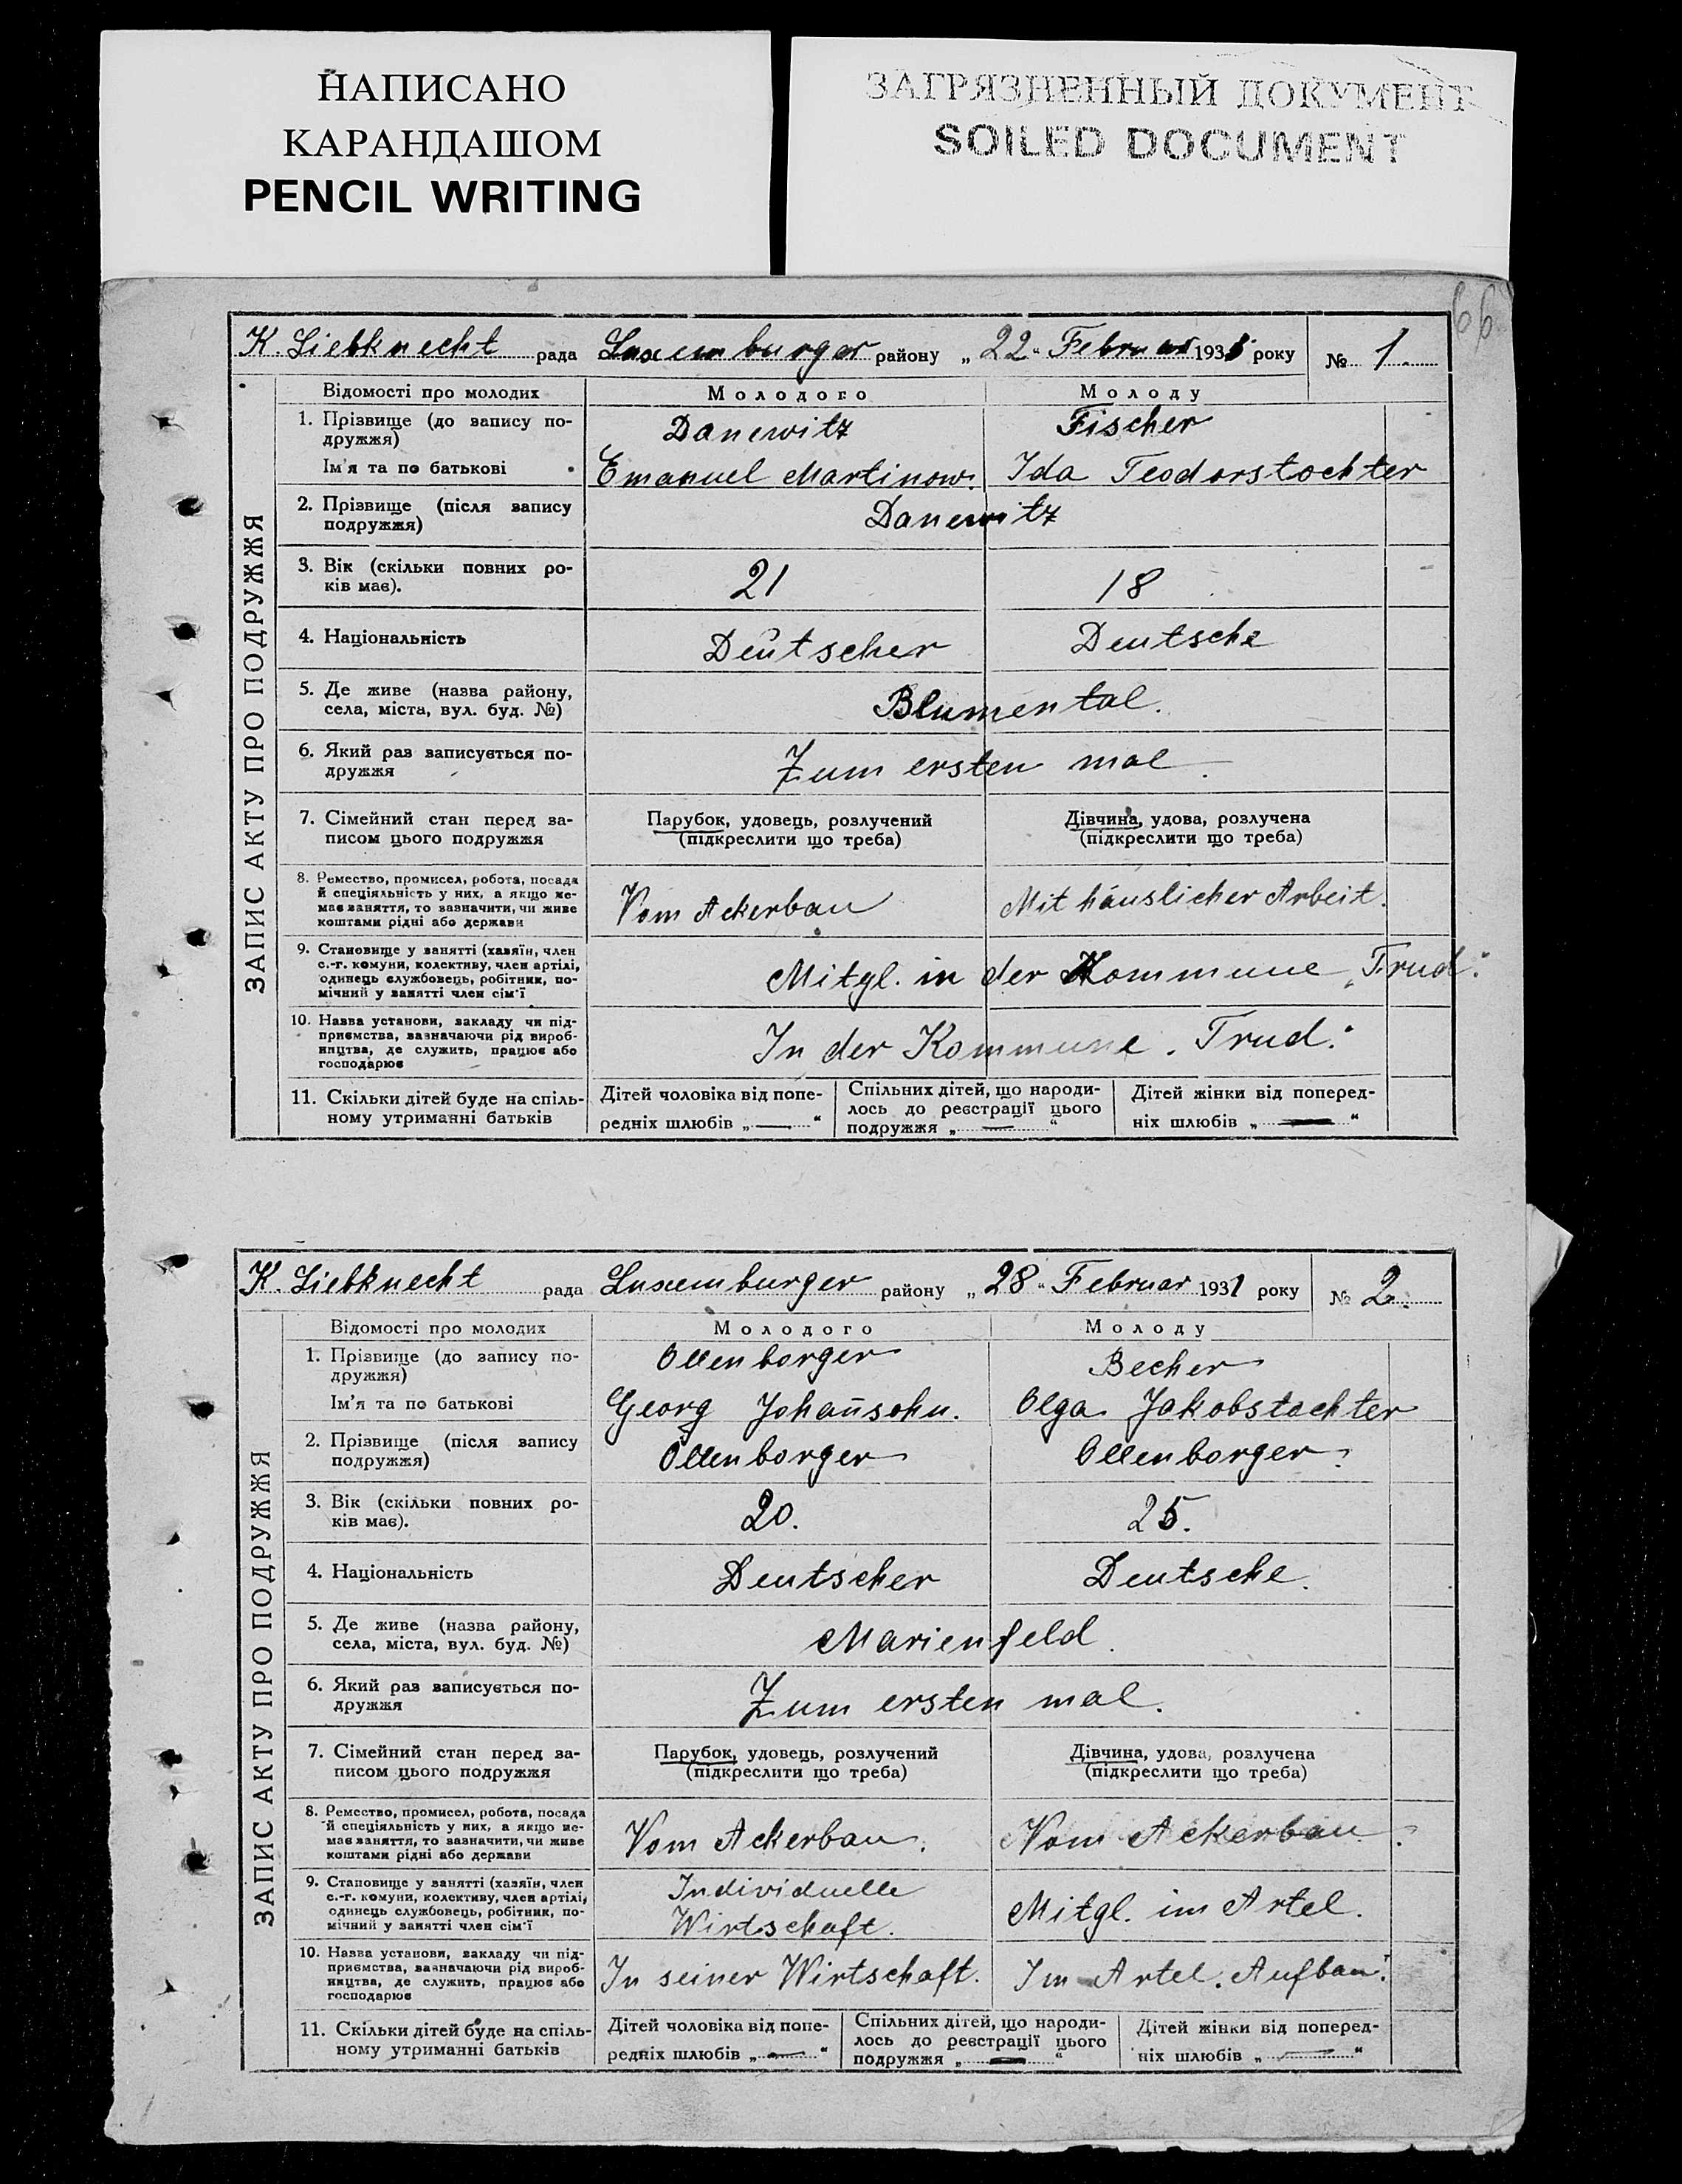 НАПИСАНО
КАРАНДАШОМ
PENCIL WRITING
ЗАГРЯЗНЕННЫЙ ДОКУМЕНТ
SOILED DOCUMENT
66
K. Liebknecht рада Luxemburger району „22“ Februar 1931 року № 1.
ЗАПИС АКТУ ПРО ПОДРУЖЖЯ
Відомості про молодих Молодого Молоду
1. Прізвище (до запису по-
дружжя) Danewitz Fischer
Ім'я та по батькові Emanuel Martinow. Ida Teodorstochter
2. Прізвище (після запису
подружжя) Danewitz
3. Вік (скільки повних ро-
ків має). 21 18
4. Національність Deutscher Deutsche
5. Де живе (назва району,
села, міста, вул. буд. №) Blumental.
6. Який раз записується по-
дружжя Zum ersten mal.
7. Сімейний стан перед за-
писом цього подружжя
Парубок, удовець, розлучений
(підкреслити що треба)
Дівчина, удова, розлучена
(підкреслити що треба)
8. Ремество, промисел, робота, посада
й спеціяльність у них, а якщо не-
має заняття, то зазначити, чи живе
коштами рідні або держави
Vom Ackerbau Mit häuslicher Arbeit.
9. Становище у занятті (хазяїн, член
с.-г. комуни, колективу, член артілі,
одинець службовець, робітник, по-
мічний у занятті член сім'ї
Mitgl. in der Kommune „Trud.“
10. Назва установи, закладу чи під-
приємства, зазначаючи рід вироб-
ництва, де служить, працює або
господарює
In der Kommune „Trud.“
11. Скільки дітей буде на спіль-
ному утриманні батьків
Дітей чоловіка від попе-
редніх шлюбів „—“
Спільних дітей, що народи-
лось до реєстрації цього
подружжя „—“
Дітей жінки від поперед-
ніх шлюбів „—“
K. Liebknecht рада Luxemburger району „28“ Februar 1931 року № 2.
ЗАПИС АКТУ ПРО ПОДРУЖЖЯ
Відомості про молодих Молодого Молоду
1. Прізвище (до запису по-
дружжя) Ollenborger Becher
Ім'я та по батькові Georg Johan̄sohn. Olga Jakobstochter
2. Прізвище (після запису
подружжя) Ollenborger Ollenborger.
3. Вік (скільки повних ро-
ків має). 20. 25.
4. Національність Deutscher Deutsche.
5. Де живе (назва району,
села, міста, вул. буд. №) Marienfeld.
6. Який раз записується по-
дружжя Zum ersten mal.
7. Сімейний стан перед за-
писом цього подружжя
Парубок, удовець, розлучений
(підкреслити що треба)
Дівчина, удова, розлучена
(підкреслити що треба)
8. Ремество, промисел, робота, посада
й спеціяльність у них, а якщо не-
має заняття, то зазначити, чи живе
коштами рідні або держави
Vom Ackerbau. Vom Ackerbau.
9. Становище у занятті (хазяїн, член
с.-г. комуни, колективу, член артілі,
одинець службовець, робітник, по-
мічний у занятті член сім'ї
Individuelle
Wirtschaft. Mitgl. im Artel.
10. Назва установи, закладу чи під-
приємства, зазначаючи рід вироб-
ництва, де служить, працює або
господарює
In seiner Wirtschaft. Im Artel „Aufbau.“
11. Скільки дітей буде на спіль-
ному утриманні батьків
Дітей чоловіка від попе-
редніх шлюбів „—“
Спільних дітей, що народи-
лось до реєстрації цього
подружжя „—“
Дітей жінки від поперед-
ніх шлюбів „—“